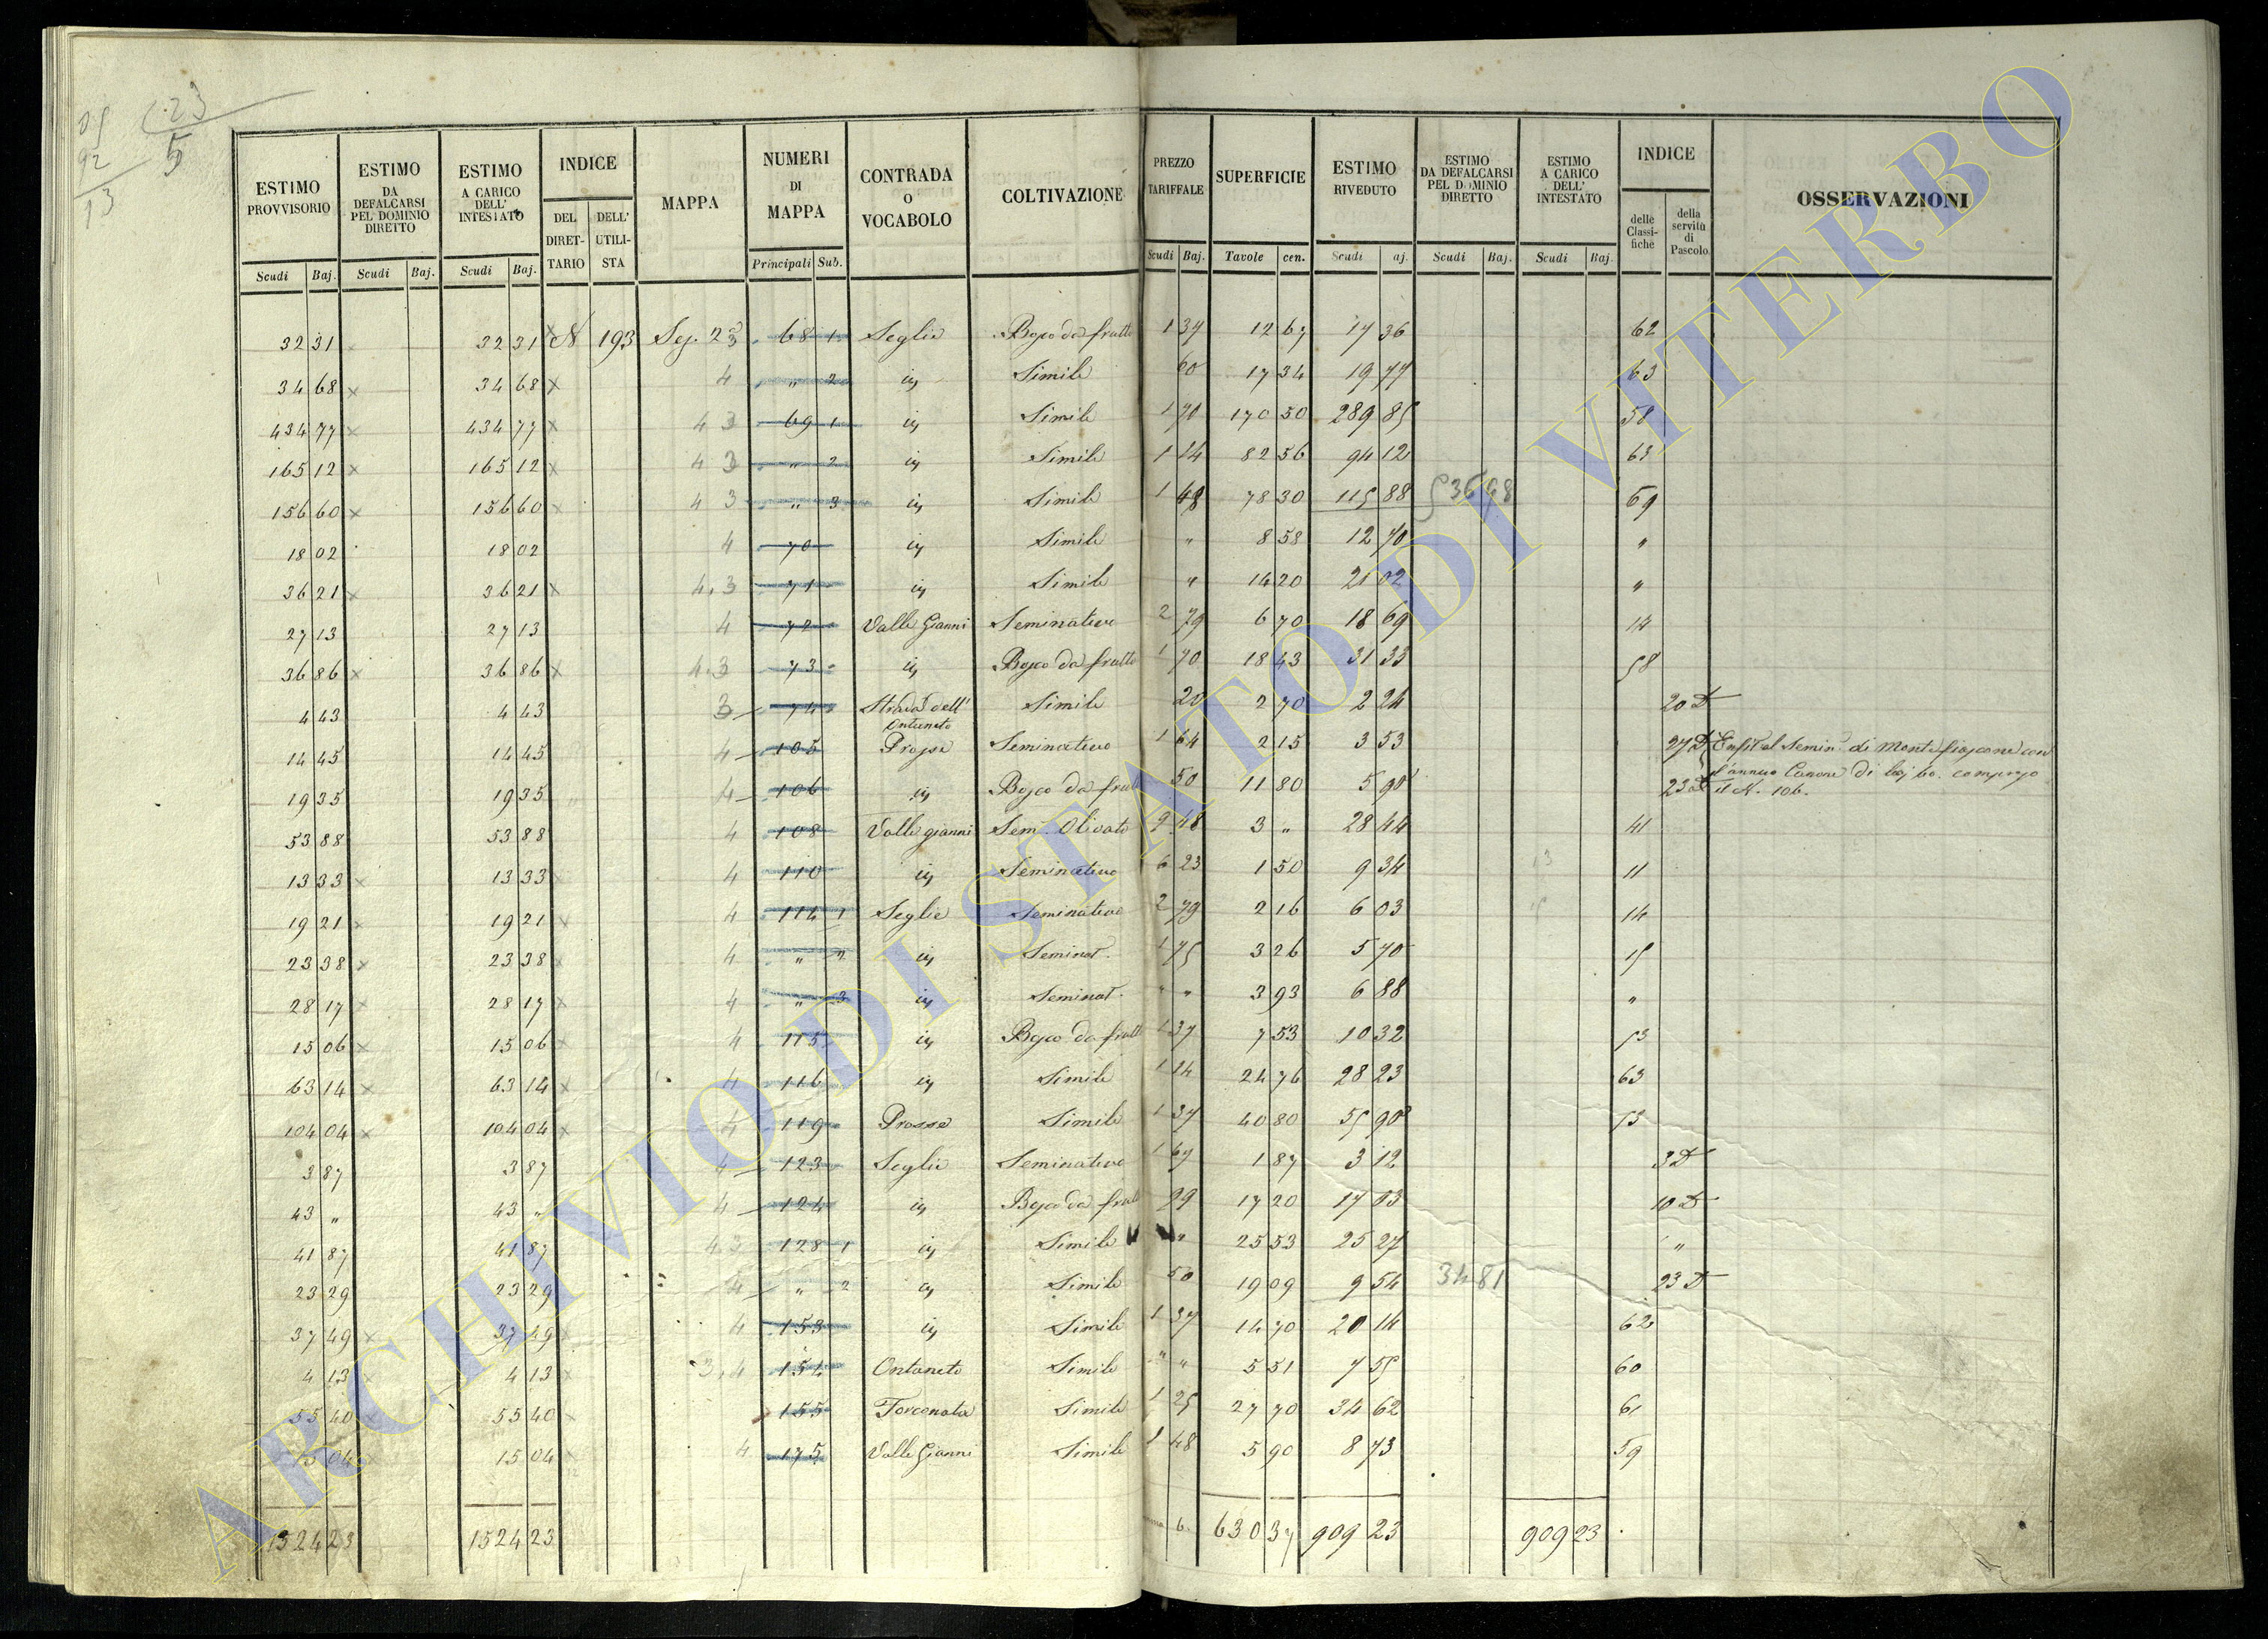 C. 23
5
ESTIMO PROVVISORIO | ESTIMO DA DEFALCARSI PEL DOMINIO DIRETTO | ESTIMO A CARICO DELL' INTESTATO | INDICE DEL DIRETTARIO | DELL' UTILISTA | MAPPA | NUMERI DI MAPPA | CONTRADA O VOCABOLO | COLTIVAZIONE | PREZZO TARIFFALE | SUPERFICIE | ESTIMO RIVEDUTO | ESTIMO DA DEFALCARSI PEL DOMINIO DIRETTO | ESTIMO A CARICO DELL' INTESTATO | INDICE delle Classifiche | della servitù di Pascolo | OSSERVAZIONI
Scudi Baj. | Scudi Baj. | Scudi Baj. | Principali Sub. | Scudi Baj. | Tavole cen. | Scudi aj. | Scudi Baj. | Scudi Baj.
32 31 32 31 N 193 Sez. 2 3 68 1 Seglie Bosco da frutto 1 37 12 67 17 36 62
34 68 34 68 4 " 2 Simile 17 34 19 77 63
434 77 434 77 4 3 69 1 Simile 1 70 170 50 289 85 58
165 12 165 12 4 3 " 2 Simile 1 14 82 56 94 12 63
156 60 156 60 4 3 " 3 Simile 1 48 78 30 115 88 536 98 59
18 02 18 02 4 70 Simile " 8 58 12 70 "
36 21 36 21 4.3 71 Simile " 14 20 21 02 "
27 13 27 13 4 72 Valle Gianni Seminativo 2 79 6 70 18 69 14
36 86 36 86 4.3 73 Bosco da frutto 1 70 18 43 31 33 58
4 43 4 43 3 74 Strada dell' Ontaneto Simile 2 70 2 24 20 D
14 45 14 45 4 105 Seminativo 1 64 2 15 3 53 27 D Enfit. al Semin. di Montefiascone con
19 35 19 35 4 106 Bosco da frutt 50 11 80 5 90 23 D l'annuo Canone di baj 60. compreso
il N. 106.
53 88 53 88 4 108 Valle gianni Sem. Olivato 9 48 3 " 28 44 41
13 33 13 33 4 110 Seminativo 6 23 1 50 9 34 11
19 21 19 21 4 114 1 Seglie Seminativo 2 79 2 16 6 03 14
23 38 23 38 4 " 2 Seminat. 1 75 3 26 5 70 15
28 17 28 17 4 " 3 Seminat. " " 3 93 6 88 "
15 06 15 06 4 115 Bosco da frutt 1 37 7 53 10 32 53
63 14 63 14 4 116 Simile 1 14 24 76 28 23 63
104 04 104 04 4 119 Prosse Simile 1 37 40 80 55 90 53
3 87 3 87 4 123 Seglie Seminativo 1 67 1 87 3 12 3 D
43 " 43 " 4 124 Bosco da frutt 99 17 20 17 03 10 D
41 87 41 87 4.3 128 1 Simile " 25 53 25 27 "
23 29 23 29 4 " 2 Simile 50 19 09 9 54 34 81 23 D
37 49 37 49 4 153 Simile 1 37 14 70 20 14 62
4 13 4 13 3.4 154 Ontaneto Simile " " 5 51 7 55 60
55 40 55 40 155 Forconata Simile 1 25 27 70 34 62 61
15 04 15 04 4 175 Valle Gianni Simile 1 48 5 90 8 73 59
1524 23 1524 23 630 37 909 23 909 23
ARCHIVIO DI STATO DI VITERBO